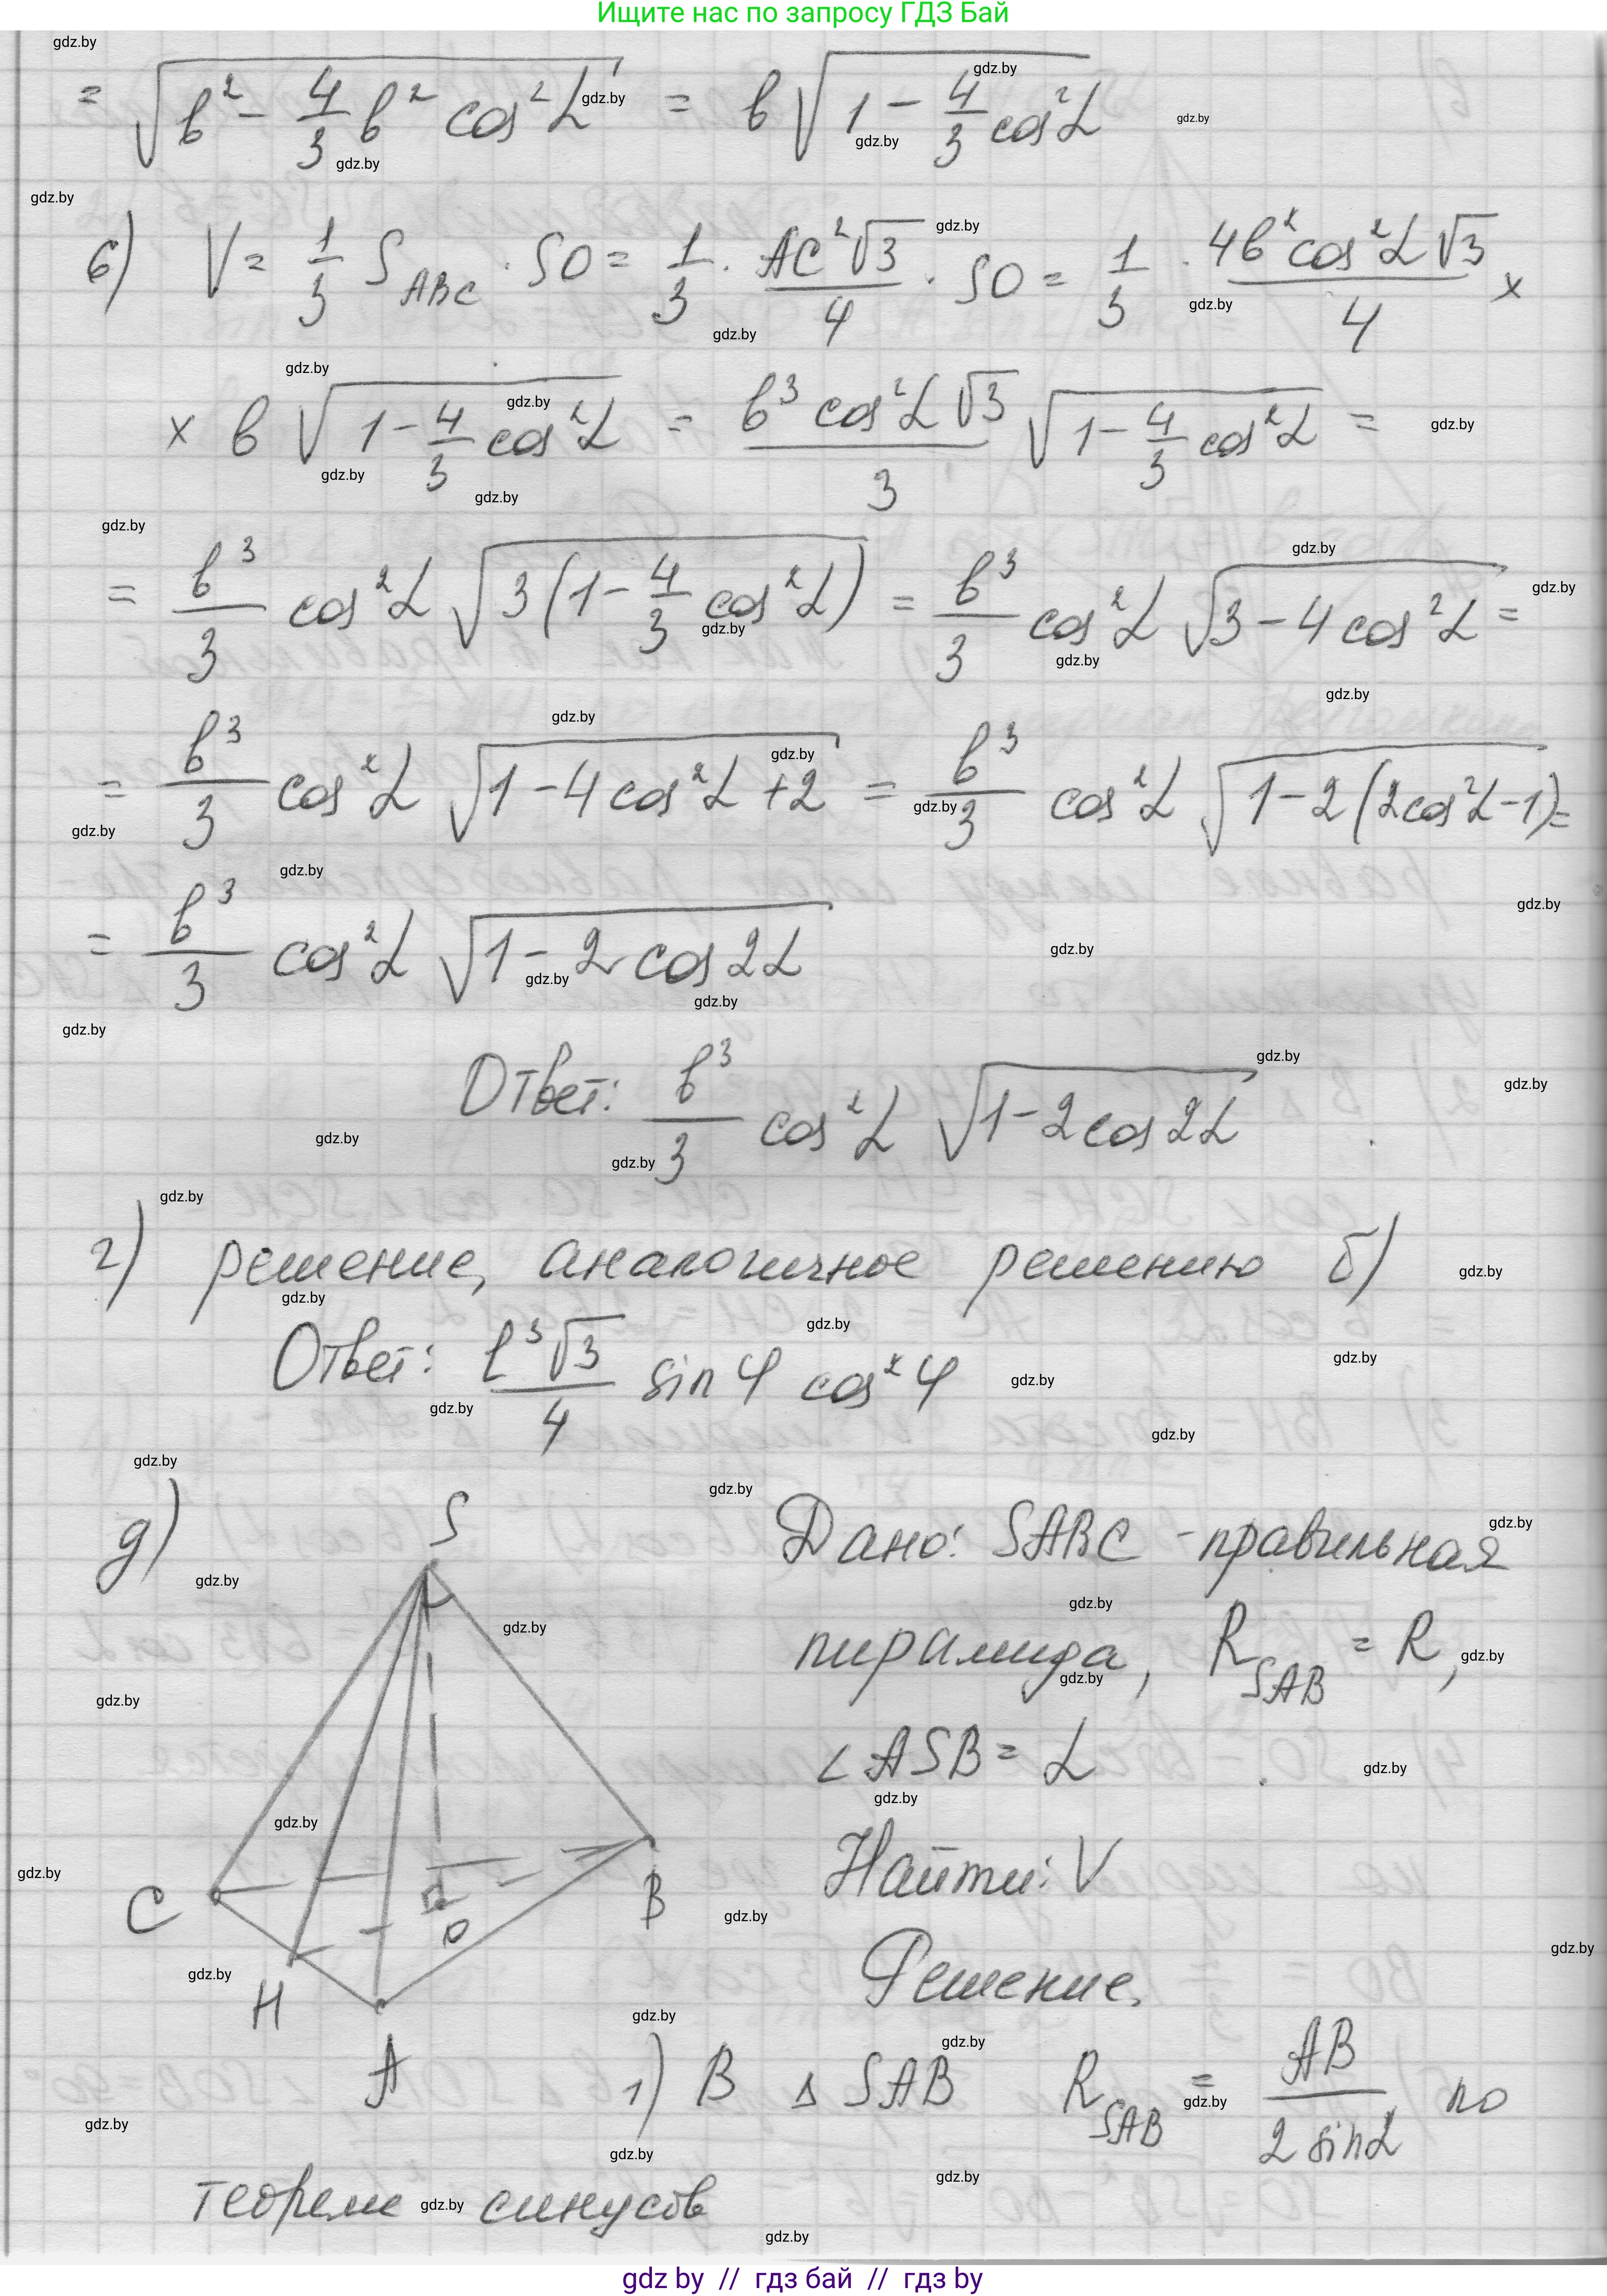 Ищите нас по запросу ГДЗ Бай
= √(b² − 4/3 b² cos²α) = b √(1 − 4/3 cos²α)
6) V = 1/3 S_ABC · SO = 1/3 · AC²√3/4 · SO = 1/3 · 4b² cos²α √3/4 ×
× b √(1 − 4/3 cos²α) = b³ cos²α √3/3 √(1 − 4/3 cos²α) =
= b³/3 cos²α √(3(1 − 4/3 cos²α)) = b³/3 cos²α √(3 − 4 cos²α) =
= b³/3 cos²α √(1 − 4 cos²α + 2) = b³/3 cos²α √(1 − 2(2cos²α − 1)) =
= b³/3 cos²α √(1 − 2 cos 2α)
Ответ: b³/3 cos²α √(1 − 2 cos 2α)
г) решение, аналогичное решению б)
Ответ: l³√3/4 sin φ cos² φ
д)
S
C
H
A
O
B
Дано: SABC - правильная
пирамида, R_SAB = R,
∠ASB = α
Найти: V
Решение.
1) В △ SAB R_SAB = AB/2 sin α по
теореме синусов
gdz by // гдз бай // гдз by
gdz.by